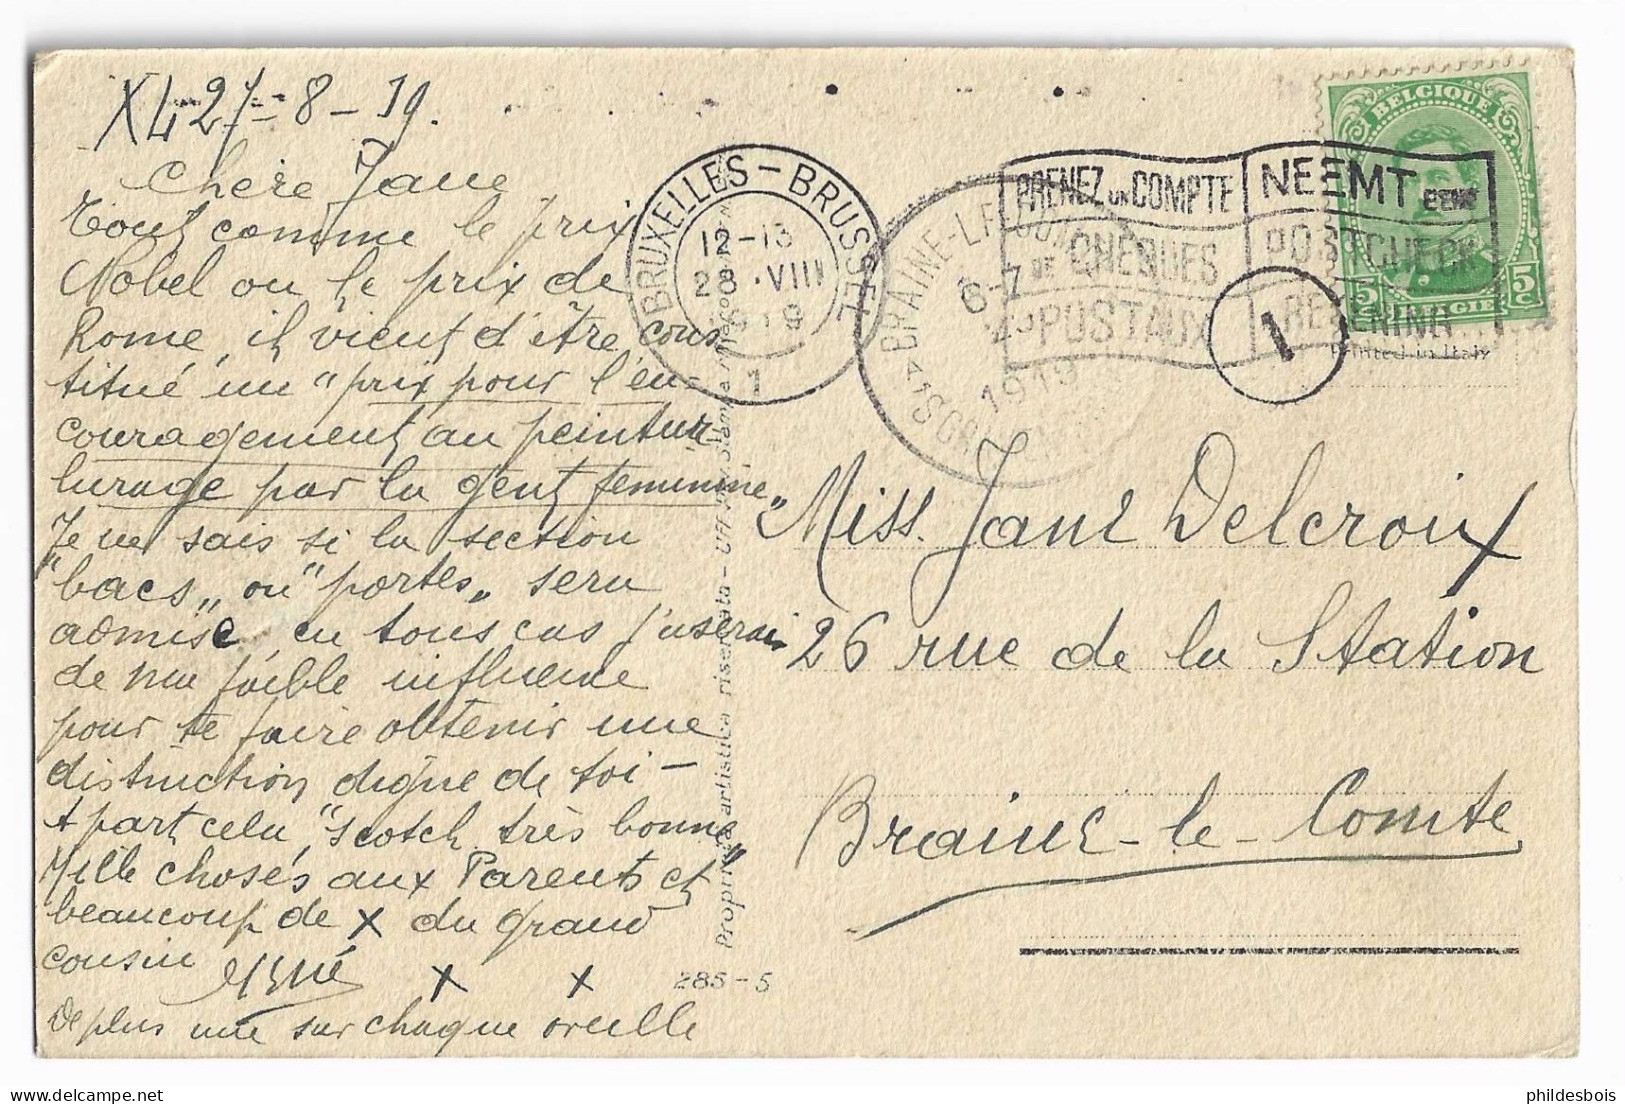 XL 27-8-19.
Chère Jane
Tout comme le prix
Nobel ou le prix de
Rome, il vient d'être cons
titué un "prix pour l'en-
couragement au peintur
lurage par la gent feminine„
Je ne sais si la section
"bacs„ ou "portes„ sera
admise, en tous cas j'userai
de ma faible influence
pour te faire obtenir une
distinction digne de toi —
A part cela, "scotch très bonne"
Mille choses aux Parents et
beaucoup de x du grand
cousin
x x
De plus une sur chaque oreille
BRUXELLES-BRUSSEL
12-13
28 VIII
1919
1
BRAINE-LE-COMTE
6-7
1919
PRENEZ UN COMPTE
DE CHÈQUES
POSTAUX
NEEMT EENE
POSTCHECK
REKENING
1
BELGIQUE
5c 5c
BELGIE
Printed in Italy
Miss. Jane Delcroix
26 rue de la Station
Braine-le-Comte
Proprietà artistica riservata -
285-5
phildesbois